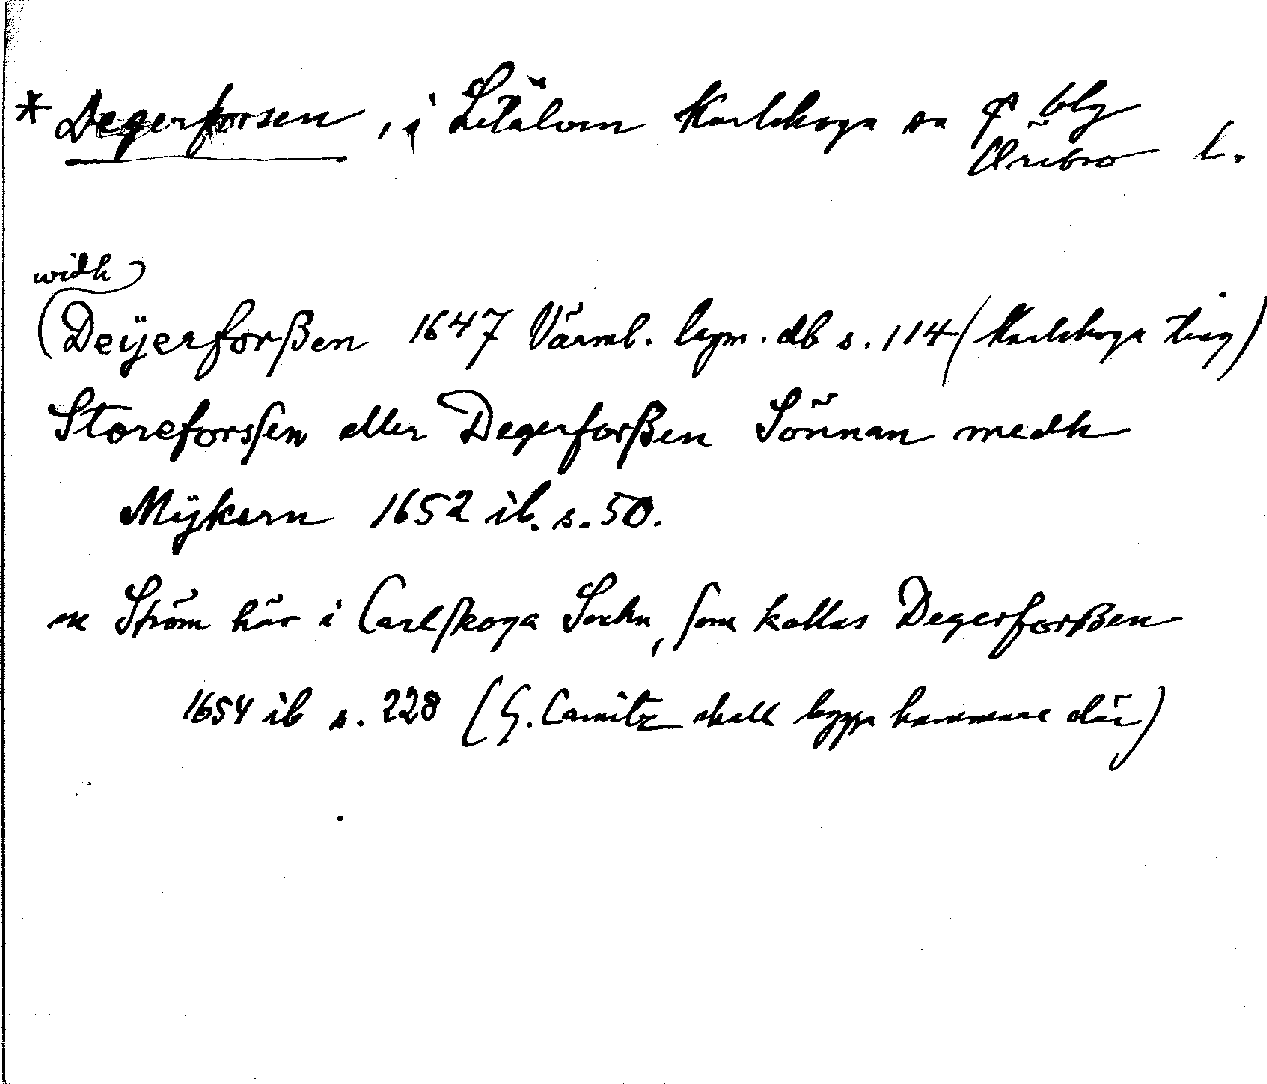 * Degerforsen, i Letälven Karlskoga sn blg
Örebro l.
widh
(Deÿerforßen 1647 Värml. lagm. db s. 114 (Karlskoga ting)
Storeforssen eller Degerforßen Sönnan medh
Mÿkern 1652 ib. s. 50.
en Ström här i Carlskoga Sochn, som kallas Degerforßen
1654 ib s. 228 (G. Camitz skall bygga hammare där)